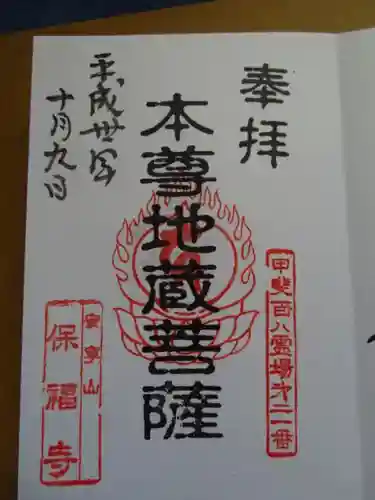 奉拝
甲斐百八霊場第二一番
本尊地蔵菩薩
平成卅年
十月九日
安寧山
保福寺